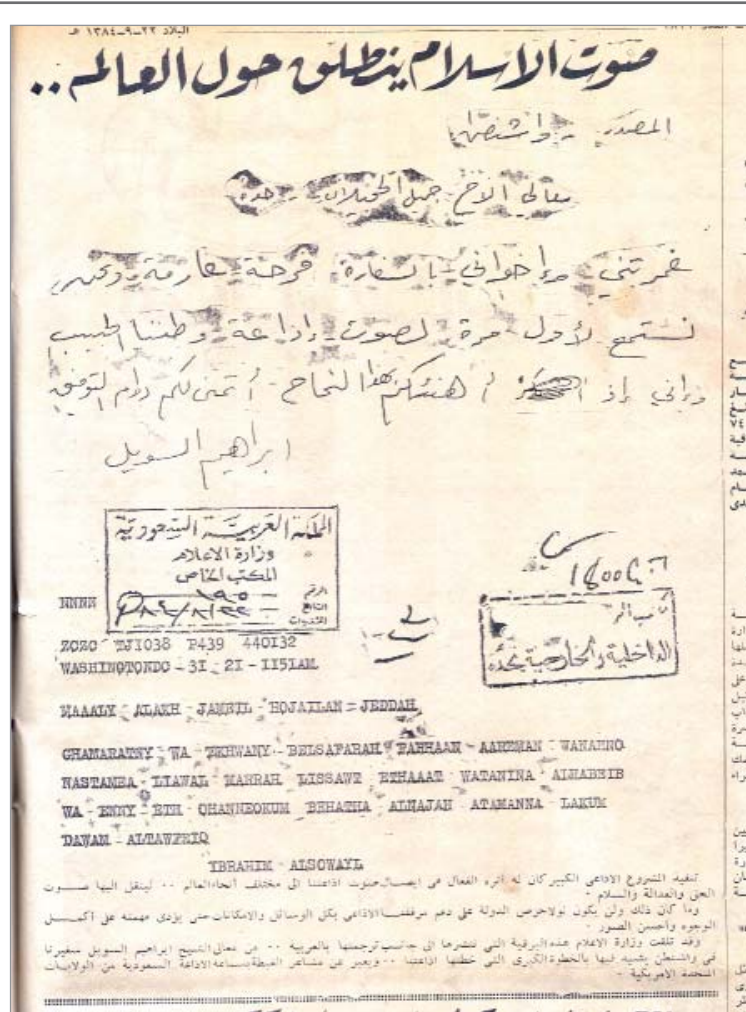 البلاد ٢٢-٩-١٣٨٤ هـ
صوت الاسلام ينطلق حول العالم ..
المصدر - واشنطن
معالي الأخ جميل الحجيلان - جده
غمرتني وإخواني بالسفارة فرحة عارمة ونحن
نستمع لأول مرة لصوت إذاعة وطننا الحبيب
وإني إذ أهنئكم بهذا النجاح أتمنى لكم دوام التوفيق
ابراهيم السويل
المملكة العربية السعودية
وزارة الاعلام
المكتب الخاص
الرقم
التابع
الداخلية والخارجية بجده
NNNN
ZCZC TJ1038 P439 440132
WASHINGTONDC - 31 - 21 - 1151AM
MAAALY - ALAKH - JAMEIL - HOJAILAN = JEDDAH
GHAMARATNY - WA - EKHWANY - BELSAFARAH - FARHAAN - AAREMAN - WANAHNO
NASTAMEA - LIAWAL - MARRAH - LISSAWT - ETHAAAT - WATANINA - ALHABEIB
WA - ENNY - ETH - OHANNEOKUM - BEHATHA - ALNAJAH - ATAMANNA - LAKUM
DAWAM - ALTAWFEIQ
IBRAHIM - ALSOWAYL
تنفيذ المشروع الاذاعي الكبير كان له أثره الفعال في ايصال صوت اذاعتنا الى مختلف أنحاء العالم .. لينقل اليها صوت
الحق والعدالة والسلام -
وما كان ذلك ولن يكون لولا حرص الدولة على دعم مرفقنا الاذاعي بكل الوسائل والامكانات حتى يؤدى مهمته على أكمل
الوجوه وأحسن الصور -
وقد تلقت وزارة الاعلام هذه البرقية التي ننشرها الى جانب ترجمتها بالعربيه .. من معالي الشيخ ابراهيم السويل سفيرنا
في واشنطن يشيد فيها بالخطوة الكبرى التي خطتها اذاعتنا .. ويعبر عن مشاعر الغبطة بسماعه الاذاعة السعودية من الولايات
المتحدة الامريكية -